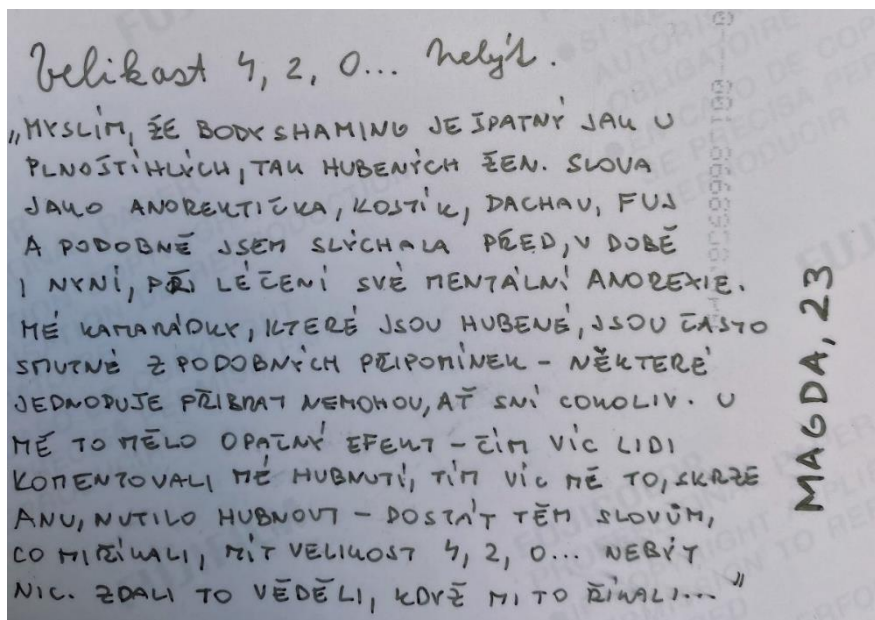 Velikost 4, 2, 0... nebýt.
„MYSLÍM, ŽE BODY SHAMING JE ŠPATNÝ JAK U
PLNOŠTÍHLÝCH, TAK HUBENÝCH ŽEN. SLOVA
JAKO ANOREKTIČKA, KOSTÍK, DACHAU, FUJ
A PODOBNĚ JSEM SLÝCHALA PŘED, V DOBĚ
I NYNÍ, PŘI LÉČENÍ SVÉ MENTÁLNÍ ANOREXIE.
MÉ KAMARÁDKY, KTERÉ JSOU HUBENÉ, JSOU ČASTO
SMUTNÉ Z PODOBNÝCH PŘIPOMÍNEK - NĚKTERÉ
JEDNODUŠE PŘIBRAT NEMOHOU, AŤ SNÍ COKOLIV. U
MĚ TO MĚLO OPAČNÝ EFEKT - ČÍM VÍC LIDI
KOMENTOVALI MÉ HUBNUTÍ, TÍM VÍC MĚ TO, SKRZE
ANU, NUTILO HUBNOUT - DOSTÁT TĚM SLOVŮM,
CO MI ŘÍKALI, MÍT VELIKOST 4, 2, 0... NEBÝT
NIC. ZDALI TO VĚDĚLI, KDYŽ MI TO ŘÍKALI..."
MAGDA, 23